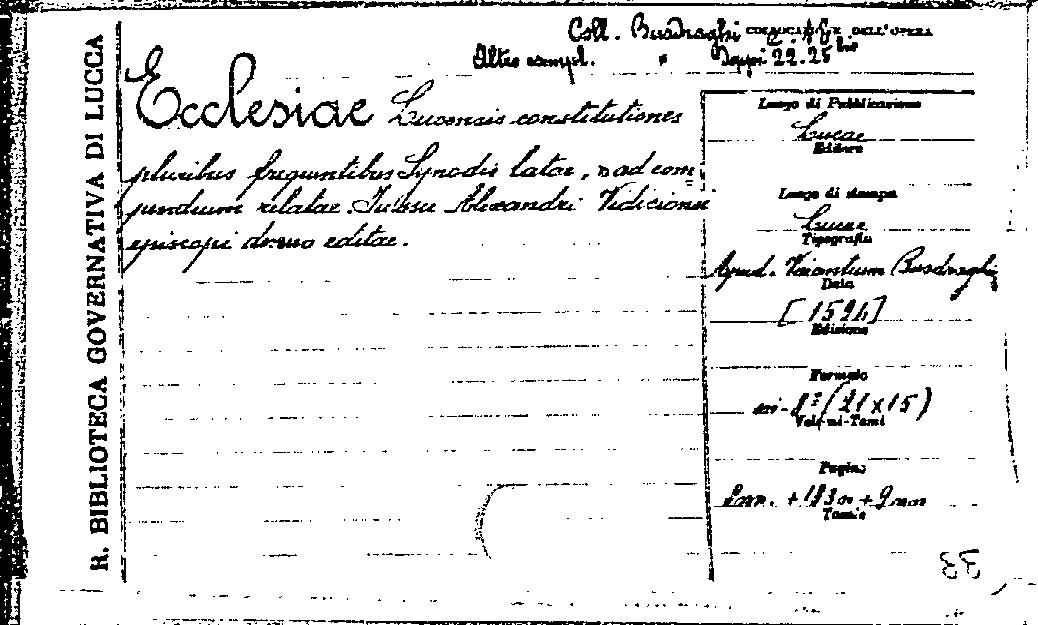 R. BIBLIOTECA GOVERNATIVA DI LUCCA
Coll. Busdraghi
COLLOCAZIONE DELL'OPERA
Altro esempl. " Doppi 22.25 bis
Ecclesiae Lucensis constitutiones
pluribus frequentibus Synodis latae, ad com
pendium relatae. Iussu Alexandri
episcopi denuo editae.
Luogo di Pubblicazione
Lucae
Editore
Luogo di stampa
Lucae
Tipografia
Apud. Busdraghi
Data
Edizione
Formato
in-8° (21x15)
Volumi-Tomi
Pagine
Tavole